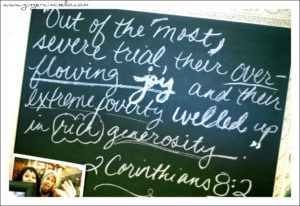 www.gingersnaella.com
"Out of the most
severe trial, their over-
flowing joy and their
extreme poverty welled up
in rich generosity."
2 Corinthians 8:2